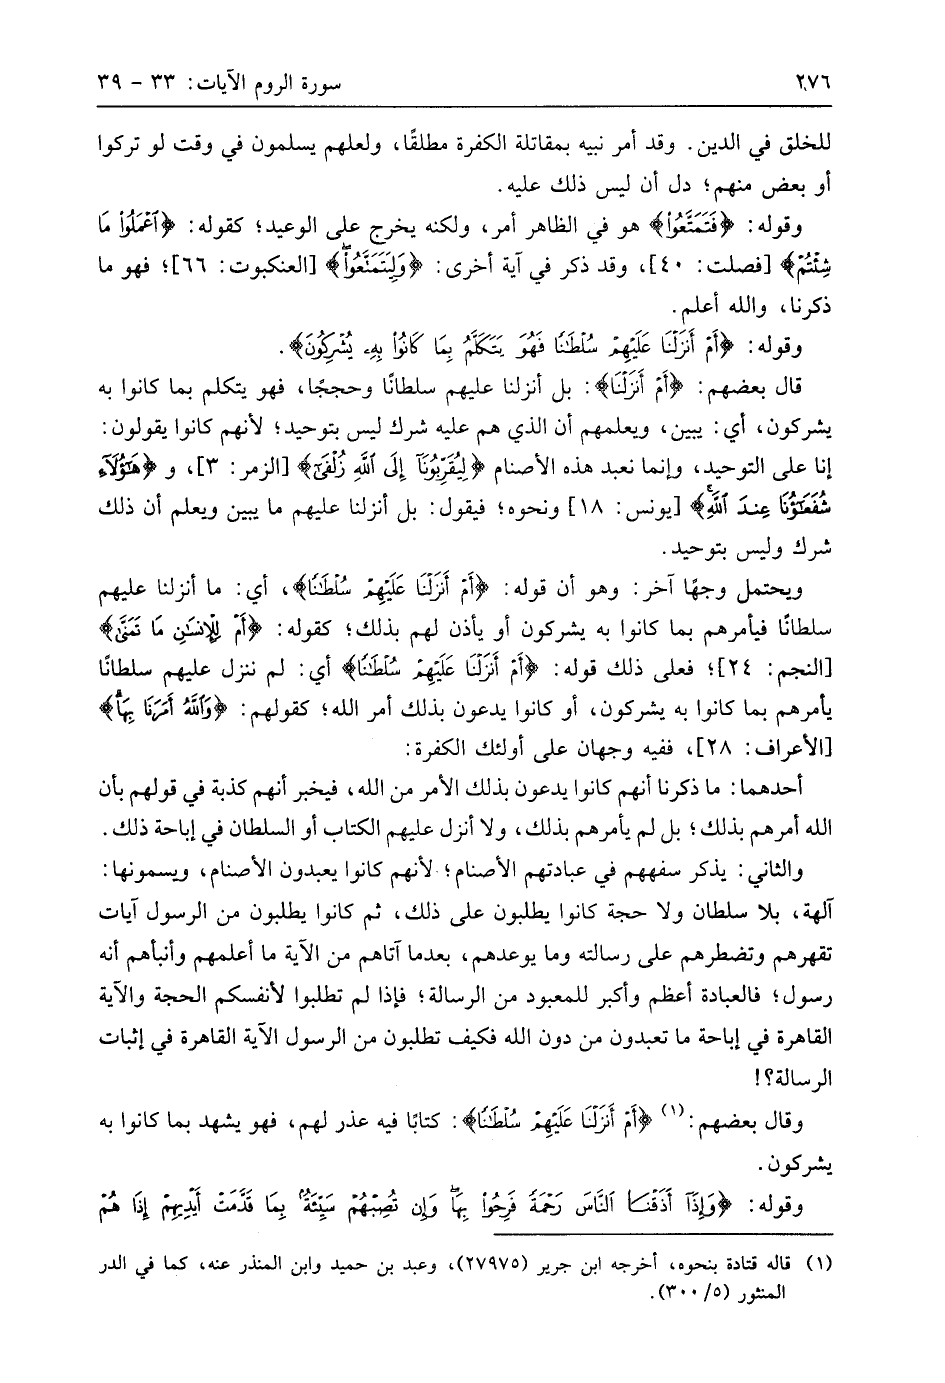 ٢٧٦ سورة الروم الآيات: ٣٣ - ٣٩
للخلق في الدين. وقد أمر نبيه بمقاتلة الكفرة مطلقًا، ولعلهم يسلمون في وقت لو تركوا
أو بعض منهم؛ دل أن ليس ذلك عليه.
وقوله: ﴿فَتَمَتَّعُوا۟﴾ هو في الظاهر أمر، ولكنه يخرج على الوعيد؛ كقوله: ﴿ٱعْمَلُوا۟ مَا
شِئْتُمْ﴾ [فصلت: ٤٠]، وقد ذكر في آية أخرى: ﴿وَلِيَتَمَتَّعُوا۟ۖ﴾ [العنكبوت: ٦٦]؛ فهو ما
ذكرنا، والله أعلم.
وقوله: ﴿أَمْ أَنزَلْنَا عَلَيْهِمْ سُلْطَٰنًا فَهُوَ يَتَكَلَّمُ بِمَا كَانُوا۟ بِهِۦ يُشْرِكُونَ﴾.
قال بعضهم: ﴿أَمْ أَنزَلْنَا﴾: بل أنزلنا عليهم سلطانًا وحججًا، فهو يتكلم بما كانوا به
يشركون، أي: يبين، ويعلمهم أن الذي هم عليه شرك ليس بتوحيد؛ لأنهم كانوا يقولون:
إنا على التوحيد، وإنما نعبد هذه الأصنام ﴿لِيُقَرِّبُونَآ إِلَى ٱللَّهِ زُلْفَىٰٓ﴾ [الزمر: ٣]، و ﴿هَٰٓؤُلَآءِ
شُفَعَٰٓؤُنَا عِندَ ٱللَّهِۚ﴾ [يونس: ١٨] ونحوه؛ فيقول: بل أنزلنا عليهم ما يبين ويعلم أن ذلك
شرك وليس بتوحيد.
ويحتمل وجهًا آخر: وهو أن قوله: ﴿أَمْ أَنزَلْنَا عَلَيْهِمْ سُلْطَٰنًا﴾، أي: ما أنزلنا عليهم
سلطانًا فيأمرهم بما كانوا به يشركون أو يأذن لهم بذلك؛ كقوله: ﴿أَمْ لِلْإِنسَٰنِ مَا تَمَنَّىٰ﴾
[النجم: ٢٤]؛ فعلى ذلك قوله: ﴿أَمْ أَنزَلْنَا عَلَيْهِمْ سُلْطَٰنًا﴾ أي: لم ننزل عليهم سلطانًا
يأمرهم بما كانوا به يشركون، أو كانوا يدعون بذلك أمر الله؛ كقولهم: ﴿وَٱللَّهُ أَمَرَنَا بِهَاۗ﴾
[الأعراف: ٢٨]، ففيه وجهان على أولئك الكفرة:
أحدهما: ما ذكرنا أنهم كانوا يدعون بذلك الأمر من الله، فيخبر أنهم كذبة في قولهم بأن
الله أمرهم بذلك؛ بل لم يأمرهم بذلك، ولا أنزل عليهم الكتاب أو السلطان في إباحة ذلك.
والثاني: يذكر سفههم في عبادتهم الأصنام؛ لأنهم كانوا يعبدون الأصنام، ويسمونها:
آلهة، بلا سلطان ولا حجة كانوا يطلبون على ذلك، ثم كانوا يطلبون من الرسول آيات
تقهرهم وتضطرهم على رسالته وما يوعدهم، بعدما آتاهم من الآية ما أعلمهم وأنبأهم أنه
رسول؛ فالعبادة أعظم وأكبر للمعبود من الرسالة؛ فإذا لم تطلبوا لأنفسكم الحجة والآية
القاهرة في إباحة ما تعبدون من دون الله فكيف تطلبون من الرسول الآية القاهرة في إثبات
الرسالة؟!
وقال بعضهم:(١) ﴿أَمْ أَنزَلْنَا عَلَيْهِمْ سُلْطَٰنًا﴾: كتابًا فيه عذر لهم، فهو يشهد بما كانوا به
يشركون.
وقوله: ﴿وَإِذَآ أَذَقْنَا ٱلنَّاسَ رَحْمَةً فَرِحُوا۟ بِهَاۖ وَإِن تُصِبْهُمْ سَيِّئَةٌۢ بِمَا قَدَّمَتْ أَيْدِيهِمْ إِذَا هُمْ
(١) قاله قتادة بنحوه، أخرجه ابن جرير (٢٧٩٧٥)، وعبد بن حميد وابن المنذر عنه، كما في الدر
المنثور (٥/ ٣٠٠).